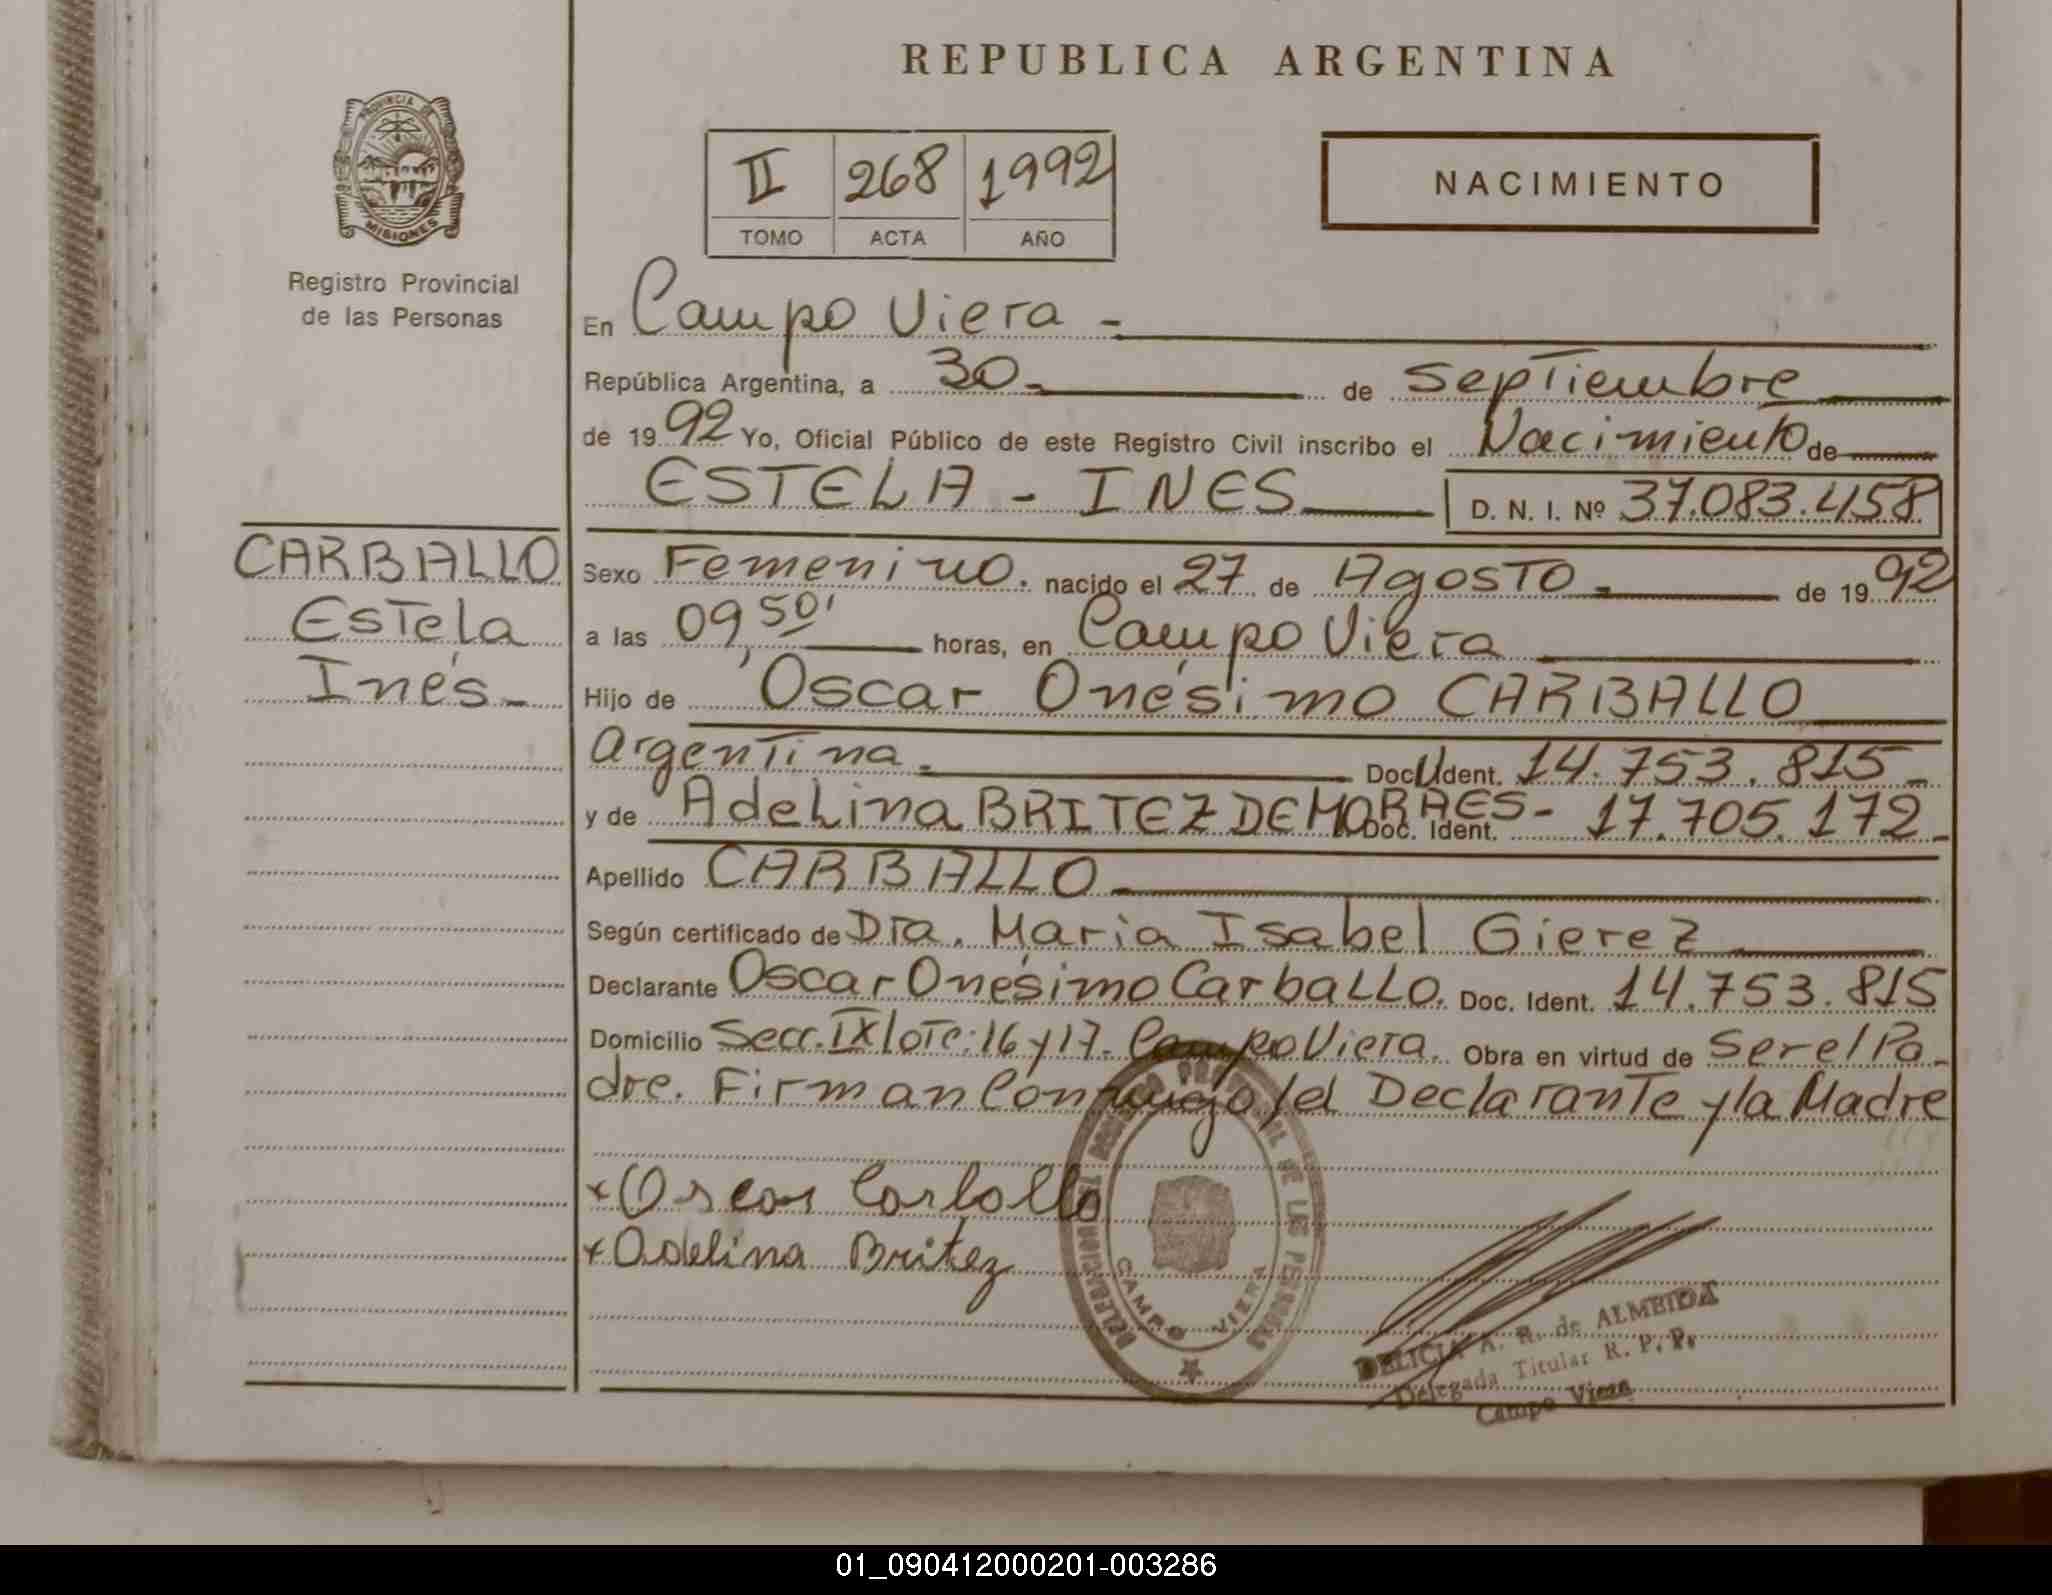 REPUBLICA ARGENTINA
PROVINCIA DE
MISIONES
Registro Provincial
de las Personas
II 268 1992
TOMO ACTA AÑO
NACIMIENTO
En Campo Viera -
República Argentina, a 30 - de Septiembre
de 1992 Yo, Oficial Público de este Registro Civil inscribo el Nacimiento de
ESTELA - INES D. N. I. Nº 37.083.458
CARBALLO
Estela
Inés -
Sexo Femenino. nacido el 27 de Agosto - de 1992
a las 09,50' horas, en Campo Viera
Hijo de Oscar Onésimo CARBALLO
Argentina. Doc. Ident. 14.753.815 -
y de Adelina BRITEZ DE MORAES - Doc. Ident. 17.705.172 -
Apellido CARBALLO -
Según certificado de Dra. María Isabel Gierez
Declarante Oscar Onésimo Carballo. Doc. Ident. 14.753.815
Domicilio Secc. IX lote: 16 y 17 - Campo Viera. Obra en virtud de Ser el Pa-
dre. Firman Conmigo, el Declarante y la Madre
x Oscar Carballo
x Adelina Britez
CAMPO VIERA
DELICIA A. R. de ALMEIDA
Delegada Titular R. P. P.
Campo Viera
01_090412000201-003286